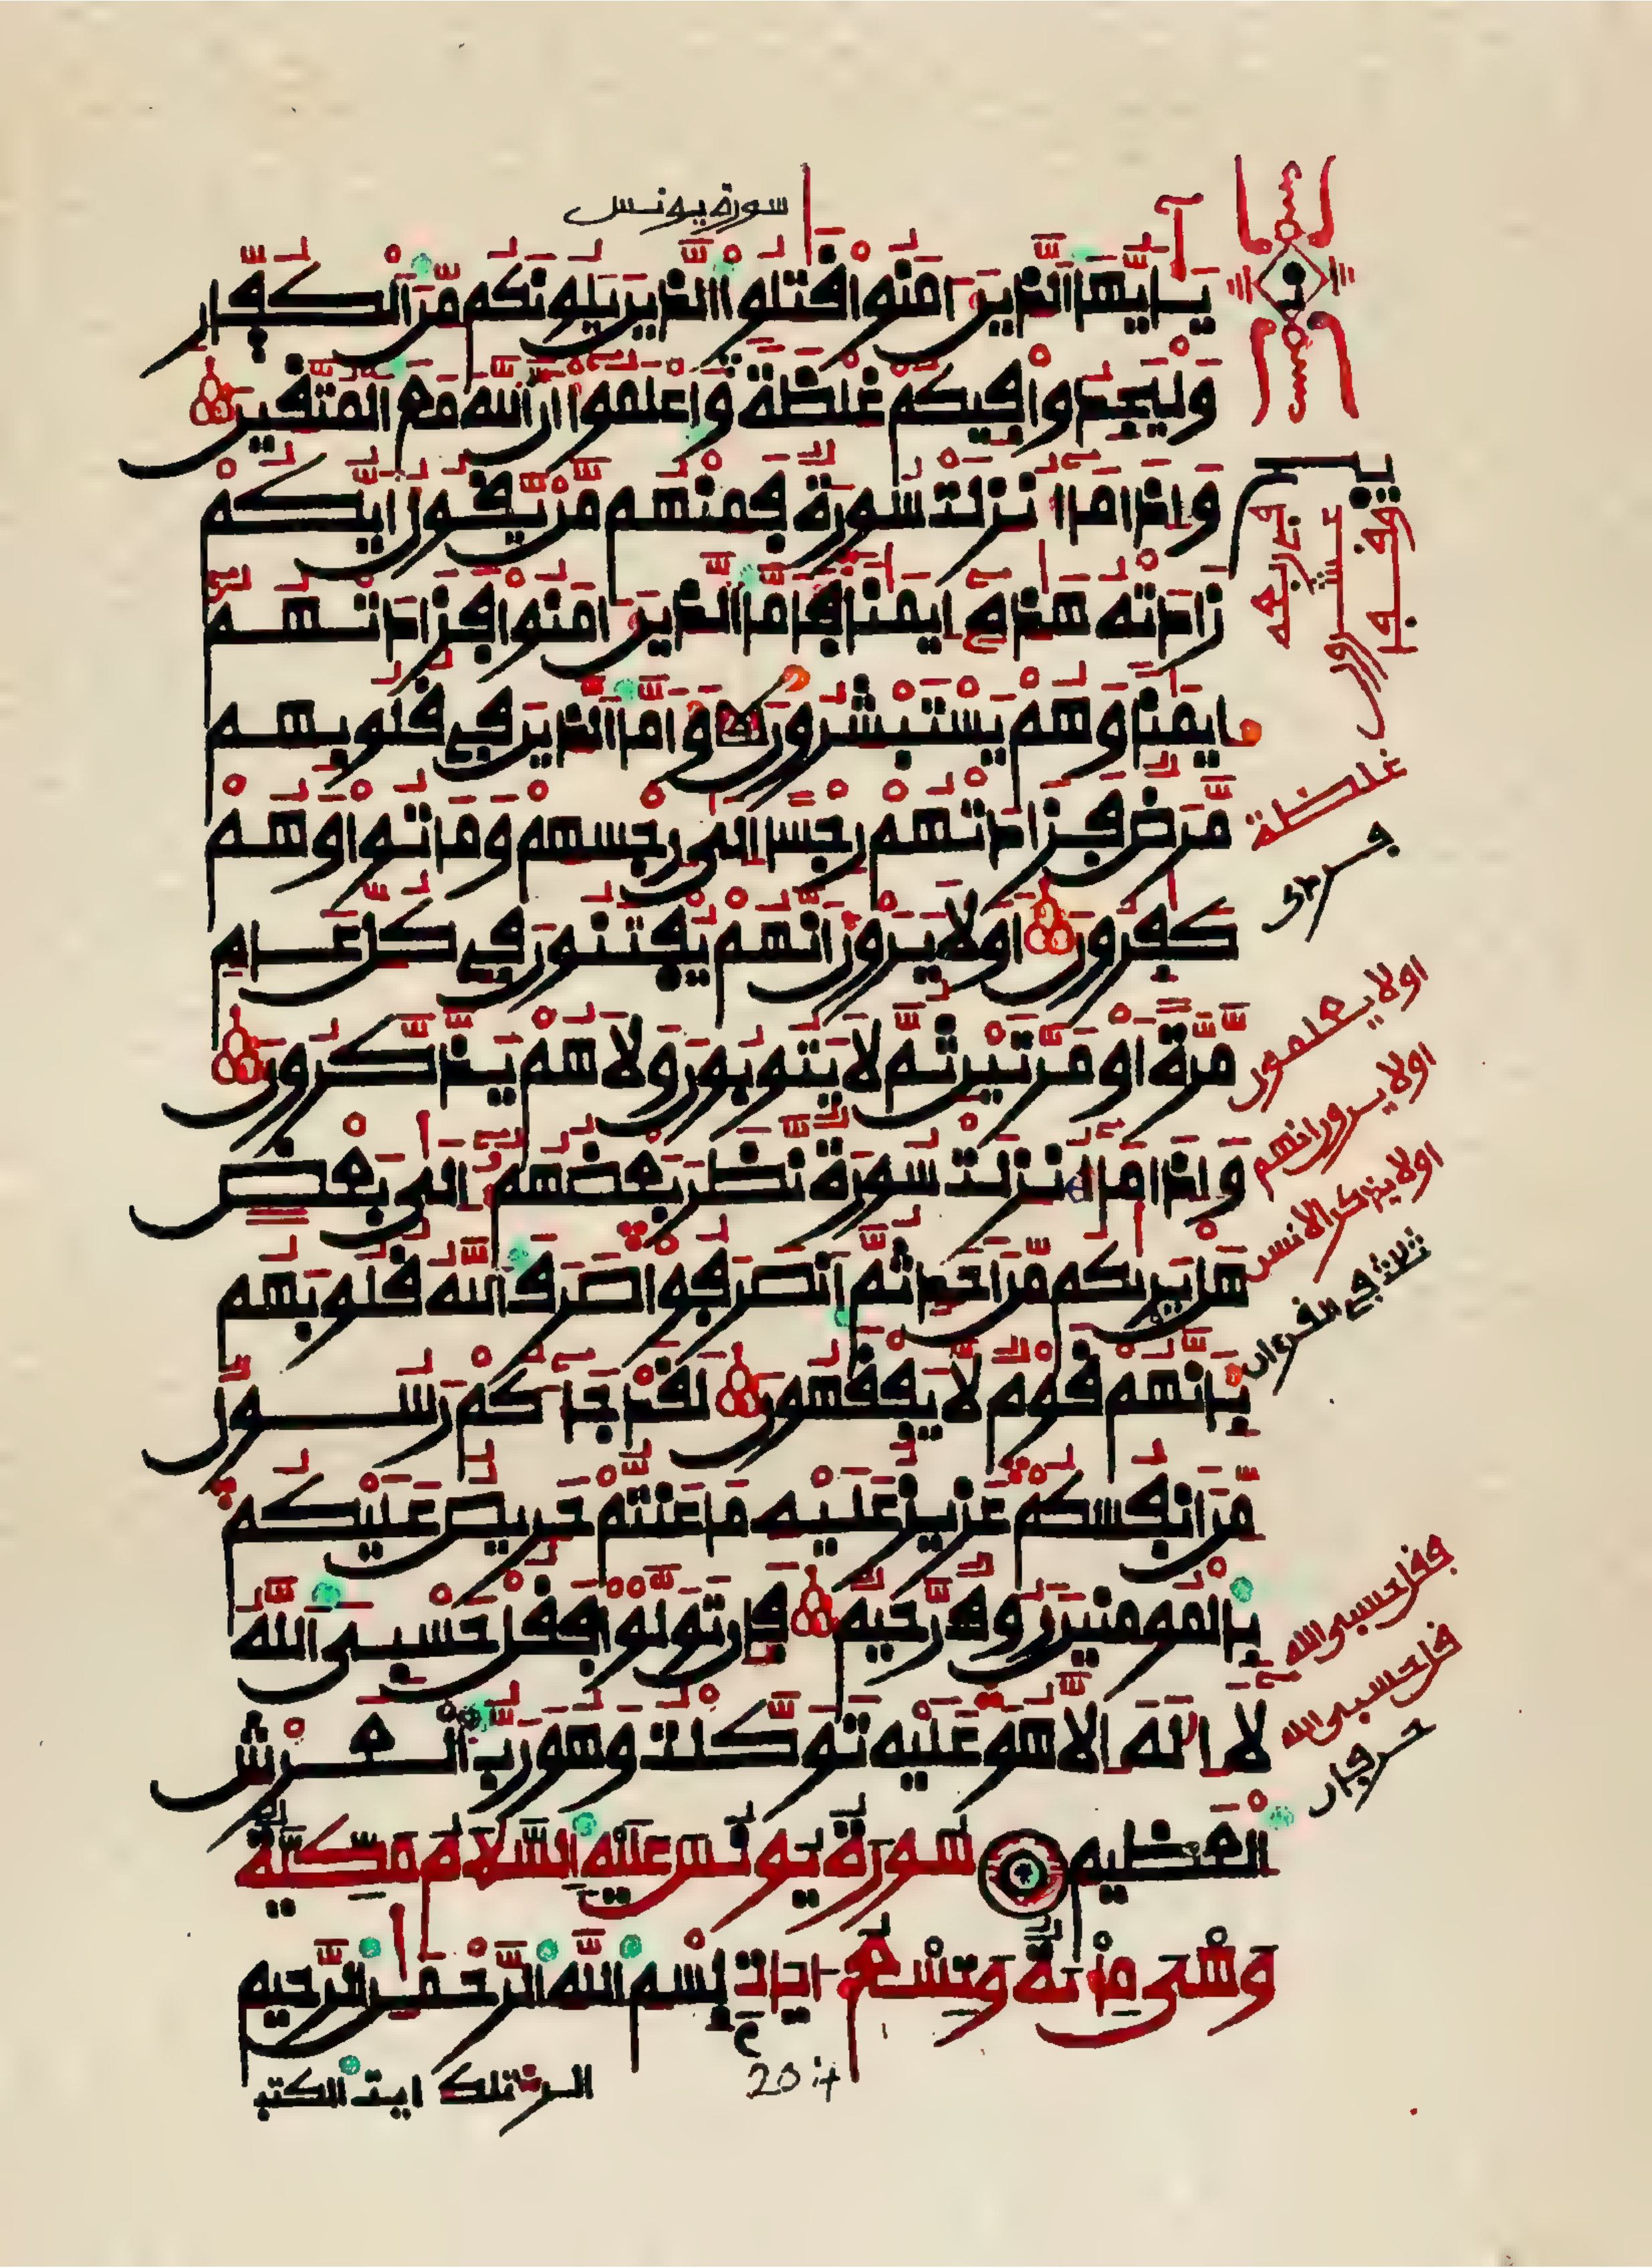 سورة يونس
يــأيها الذين ءامنوا قتلوا الذين يلونكم من الكفار
وليجدوا فيكم غلظة واعلموا أن الله مع المتقين
وإذا ما أنزلت سورة فمنهم من يقول أيكم
زادته هذه إيمنا فأما الذين ءامنوا فزادتهم
إيمنا وهم يستبشرون وأما الذين في قلوبهم
مرض فزادتهم رجسا إلى رجسهم وماتوا وهم
كفرون أولا يرون أنهم يفتنون في كل عام
مرة أو مرتين ثم لا يتوبون ولا هم يذكرون
وإذا ما أنزلت سورة نظر بعضهم إلى بعض
هل يريكم من أحد ثم انصرفوا صرف الله قلوبهم
بأنهم قوم لا يفقهون لقد جاءكم رسول
من أنفسكم عزيز عليه ما عنتم حريص عليكم
بالمومنين رءوف رحيم فإن تولوا فقل حسبي الله
لا إله إلا هو عليه توكلت وهو رب العرش
العظيم سورة يونس عليه السلام مكية
وهي مائة وتسع ءايات بسم الله الرحمن الرحيم
الر تلك ءايت الكتب
غلظة
أولا يعلمون
أولا يرون أنهم
أولا يذكر الانسن
ثلاث في القرءان
فقل حسبي الله
قل حسبي الله
حرفان